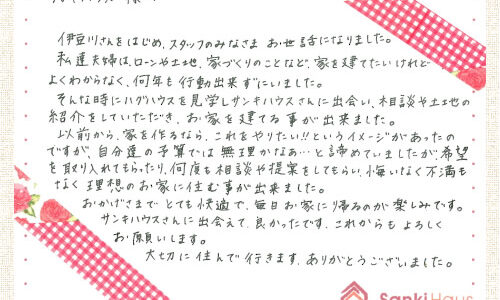 伊豆川さんをはじめ、スタッフのみなさま お世話になりました。
私達夫婦は、ローンや土地、家づくりのことなど、家を建てたいけれど
よくわからなく、何年も行動出来ずにいました。
そんな時にハグハウスを見学しサンキハウスさんに出会い、相談や土地の
紹介をしていただき、お家を建てる事が出来ました。
以前から、家を作るなら、これをやりたい!!というイメージがあったの
ですが、自分達の予算では無理かなあ…と諦めていましたが、希望
を取り入れてもらったり、何度も相談や提案をしてもらい、悔いなく不満も
なく理想のお家に住む事が出来ました。
おかげさまで とても快適で、毎日お家に帰るのが楽しみです。
サンキハウスさんに出会えて、良かったです。これからも よろしく
お願いします。
大切に住んで行きます、ありがとうございました。
Sanki Haus